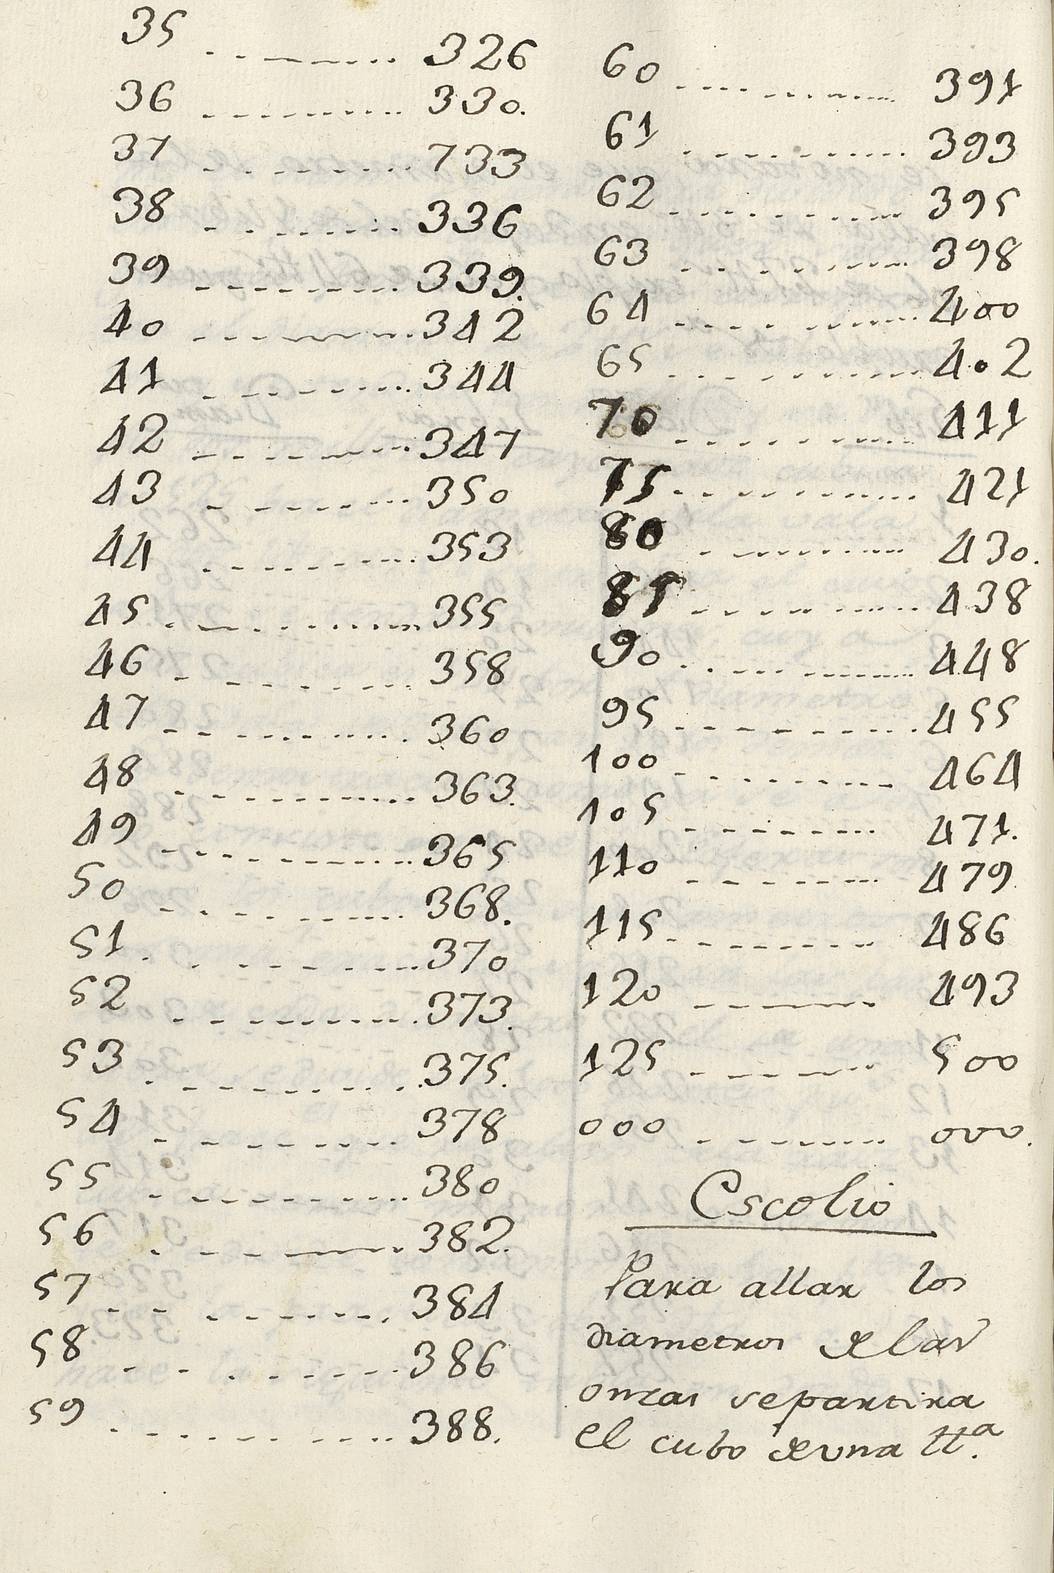 35 ......... 326
36 ......... 330.
37 ......... 733
38 ......... 336
39 ......... 339.
40 ......... 342
41 ......... 344
42 ......... 347
43 ......... 350
44 ......... 353
45 ......... 355
46 ......... 358
47 ......... 360
48 ......... 363.
49 ......... 365
50 ......... 368.
51 ......... 370
52 ......... 373.
53 ......... 375.
54 ......... 378
55 ......... 380
56 ......... 382.
57 ......... 384
58 ......... 386
59 ......... 388.
60 ......... 391
61 ......... 393
62 ......... 395
63 ......... 398
64 ......... 400
65 ......... 402
70 ......... 411
75 ......... 421
80 ......... 430.
85 ......... 438
90 ......... 448
95 ......... 455
100 ......... 464
105 ......... 471.
110 ......... 479
115 ......... 486
120 ......... 493
125 ......... 500
000 ......... 000.
Escolio
Para allar los
diametros de las
onzas separtira
el cubo de una tt.ª